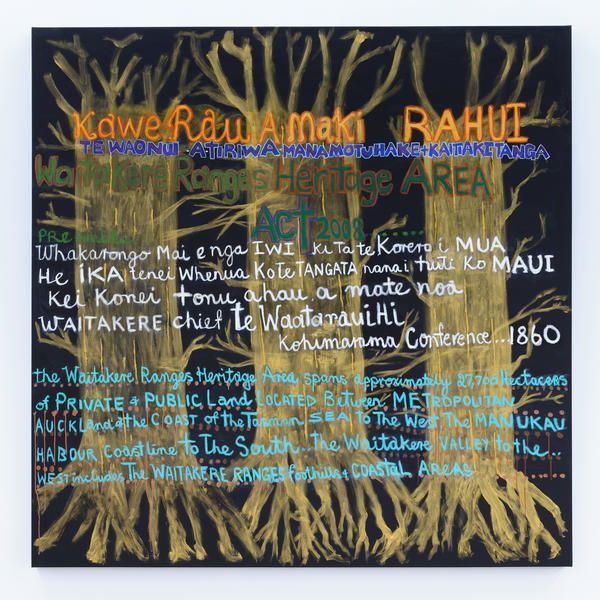 Kawe Rau A Maki RAHUI
TE WAONUI A TIRIWA MANA MOTUHAKE + KAITIAKITANGA
Waitakere Ranges Heritage AREA
ACT 2008 ......
Whakarongo Mai e nga IWI ki Ta te Korero i MUA
He IKA tenei Whenua Kote TANGATA nana i huti Ko MAUI
Kei Konei tonu ahau a mate noa
WAITAKERE chief te Waatarauihi
Kohimarama Conference...1860
the Waitakere Ranges Heritage Area spans approximately 27,700 Hectacers
of PRIVATE + PUBLIC Land LOCATED Between METROPOLITAN
AUCKLand + the COAST of the Tasman SEA To The West The MANUKAU
HABOUR Coastline to The South...The Waitakere VALLEY to the..
WEST includes The WAITAKERE RANGES foothills + COASTAL AREAS